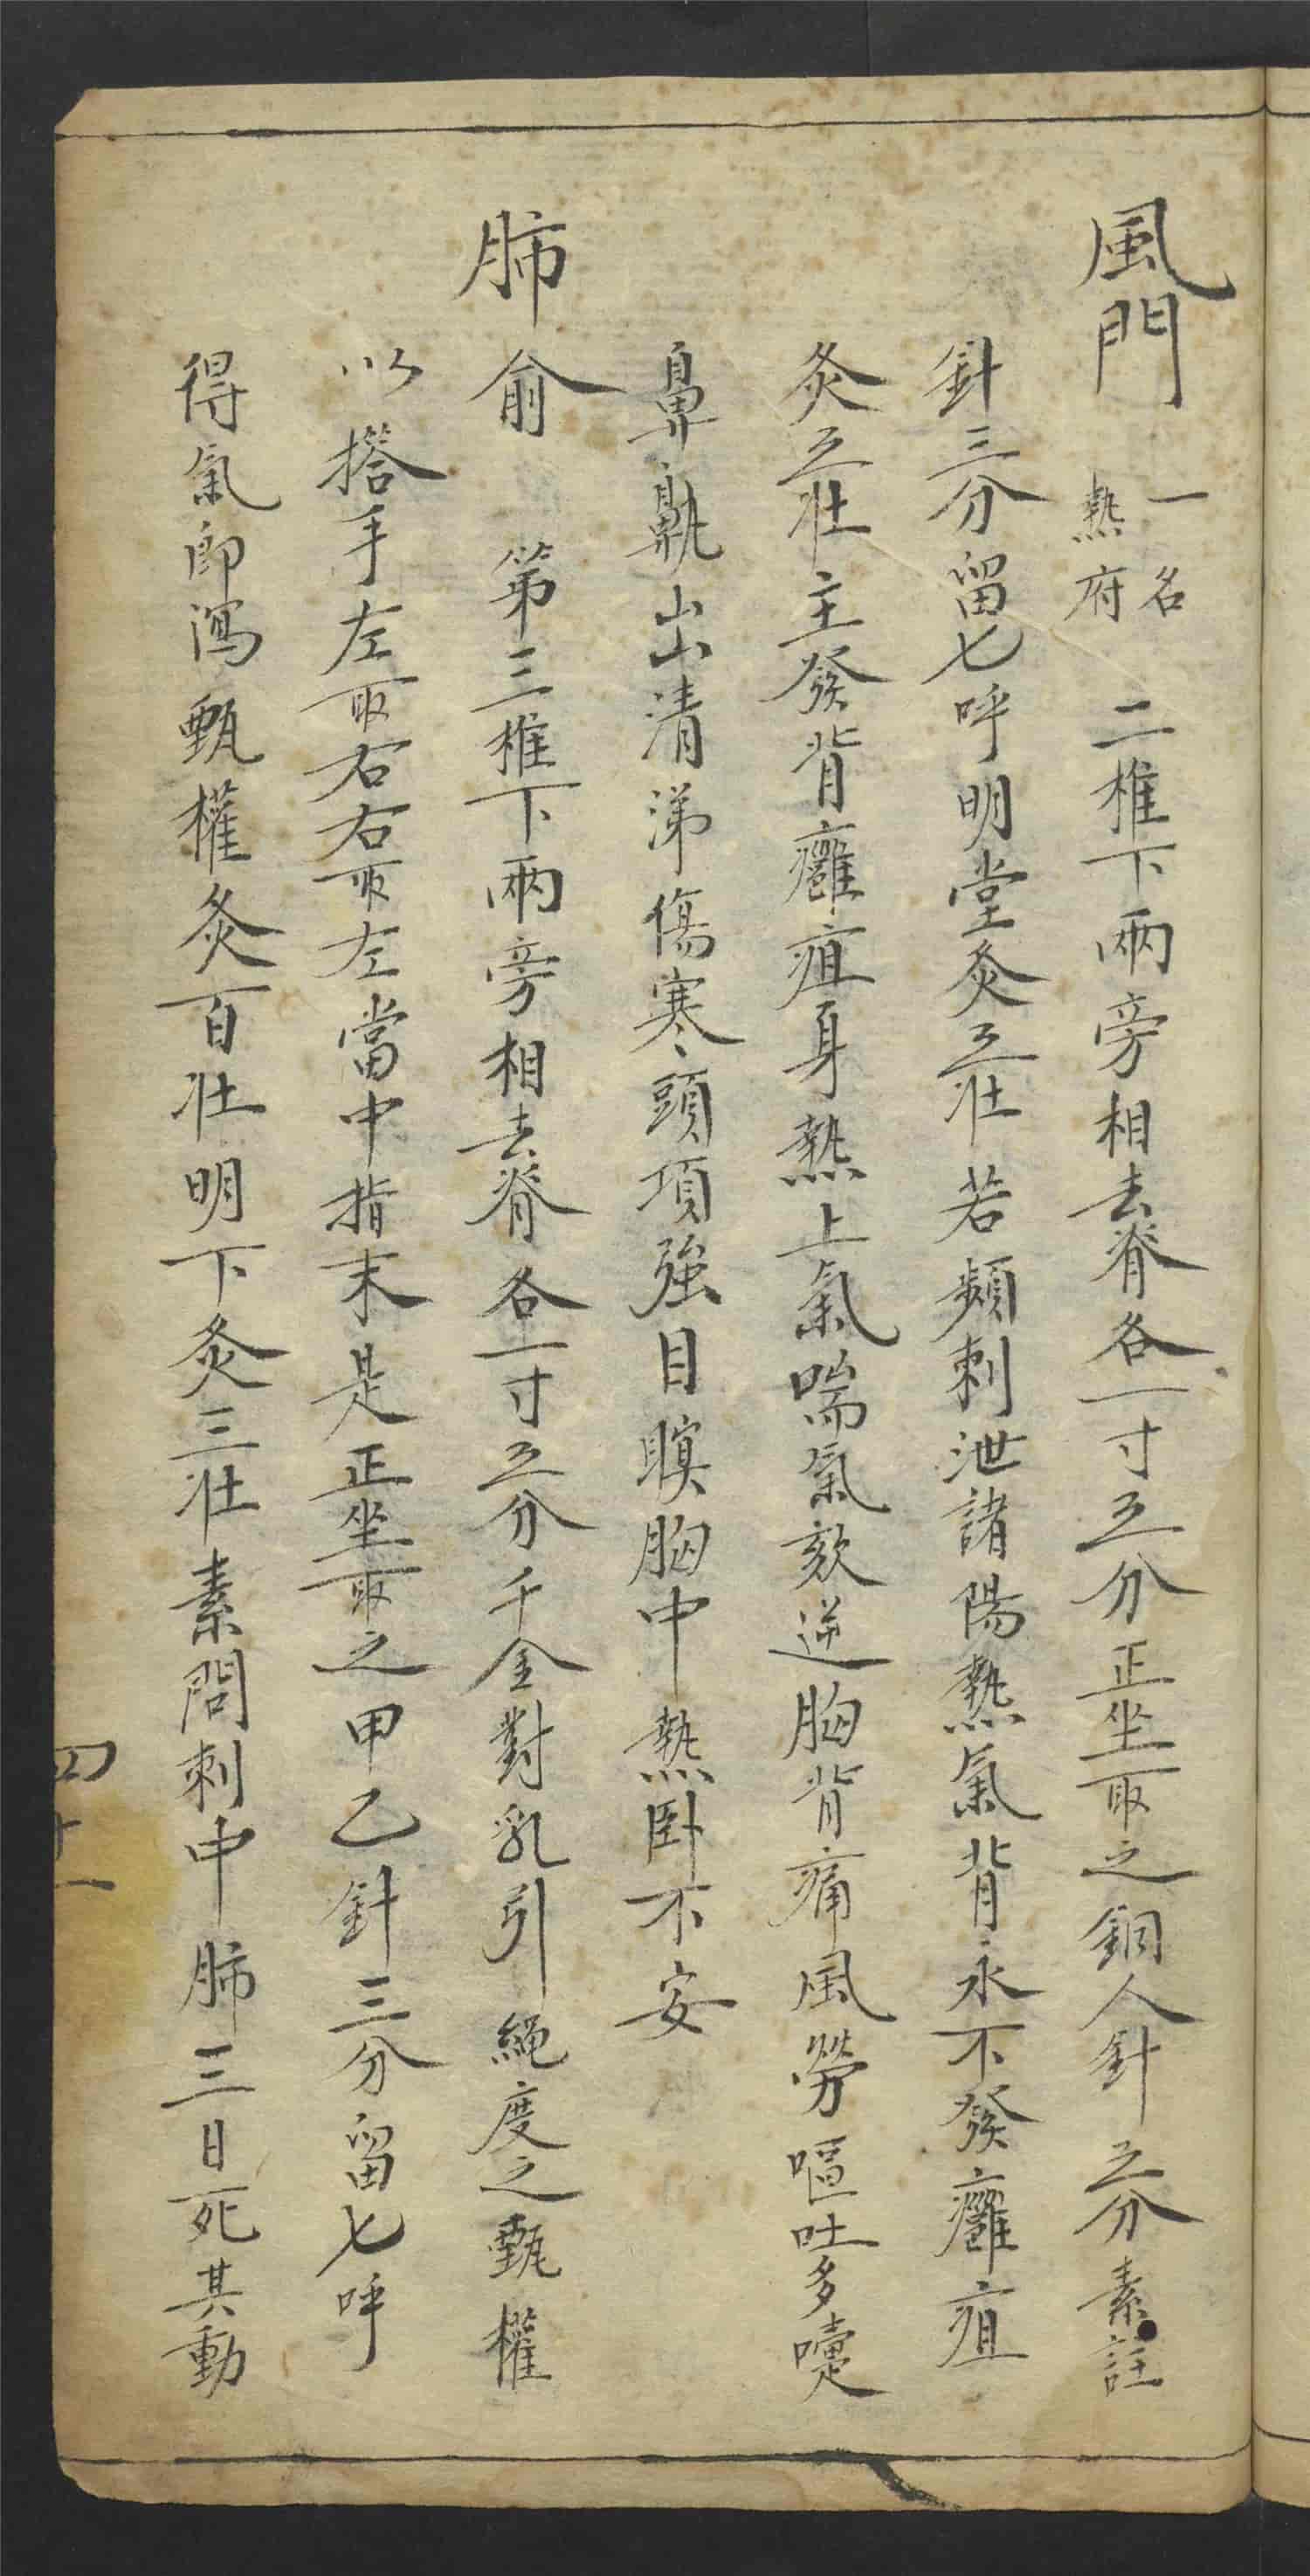 風門 一名熱府 二椎下兩旁相去脊各一寸五分正坐取之銅人針五分素註
針三分留七呼明堂灸五壯若頻刺泄諸陽熱氣背永不發癰疽
灸五壯主發背癰疽身熱上氣喘氣欬逆胸背痛風勞嘔吐多嚏
鼻鼽出清涕傷寒頭項強目瞑胸中熱卧不安
肺俞 第三椎下兩旁相去脊各一寸五分千金對乳引繩度之甄權
以搭手左取右右取左當中指末是正坐取之甲乙針三分留七呼
得氣即瀉甄權灸百壯明下灸三壯素問刺中肺三日死其動
四十一